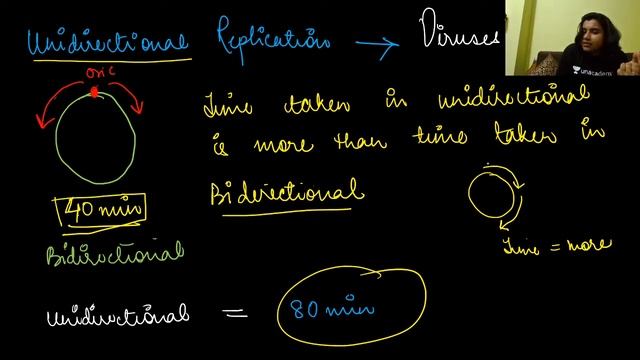 Unidirectional Replication → Viruses
oric
Time taken in unidirectional
is more than time taken in
Bidirectional
40 min
Bidirectional
Time = more
Unidirectional = 80 min
unacademy